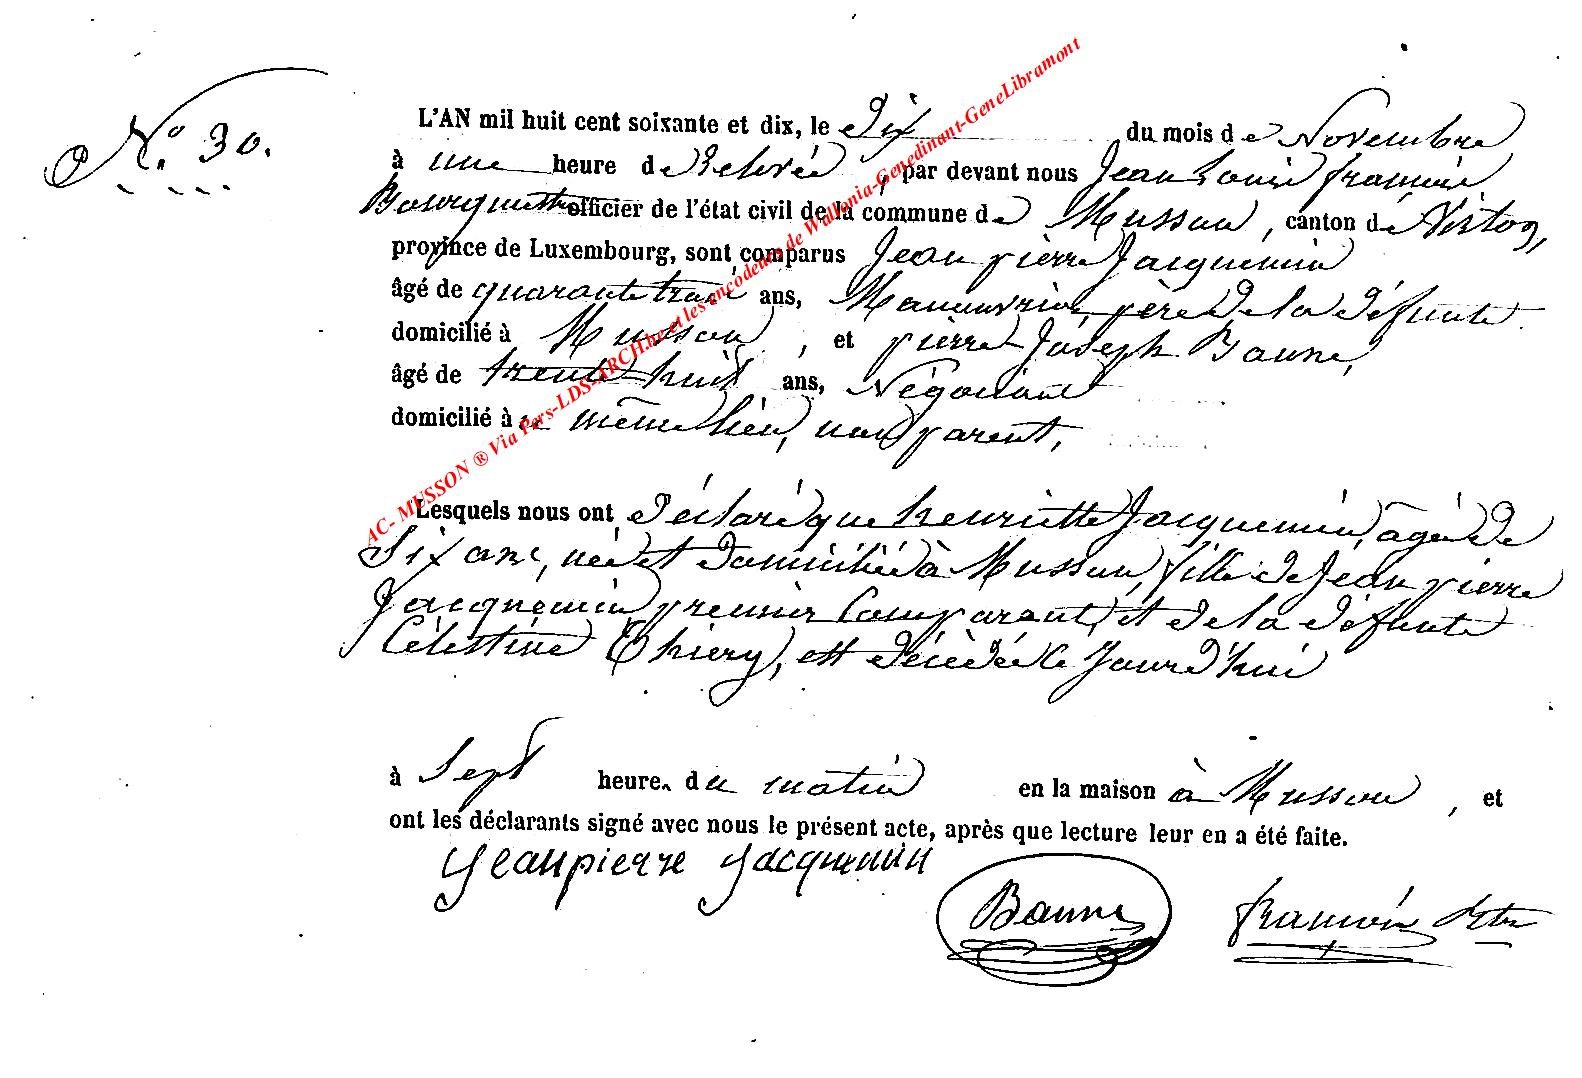 N.° 30.
L'AN mil huit cent soixante et dix, le Dix du mois de Novembre
à une heure de Relevée, par devant nous Jean Louis
officier de l'état civil de la commune de Musson, canton de Virton,
province de Luxembourg, sont comparus Jean pierre Jacquemin
âgé de quarante trois ans, Manœuvrier, père de la défunte
domicilié à Musson, et pierre Joseph Baune,
âgé de trente huit ans, Négociant
domicilié à ce même lieu, non parent,
Lesquels nous ont déclaré que henriette Jacquemin, agée de
Six ans, née et domiciliée à Musson, fille de Jean pierre
Jacquemin premier Comparant, et de la défunte
Célestine Thiery, est décédée ce Jourd'hui
à Sept heures du matin en la maison à Musson, et
ont les déclarants signé avec nous le présent acte, après que lecture leur en a été faite.
Jeanpierre Jacquemin
Baune
AC- MUSSON ® Via Pers-LDS-ARCH.be et les encodeurs de Wallonia-Genedinant-GeneLibramont